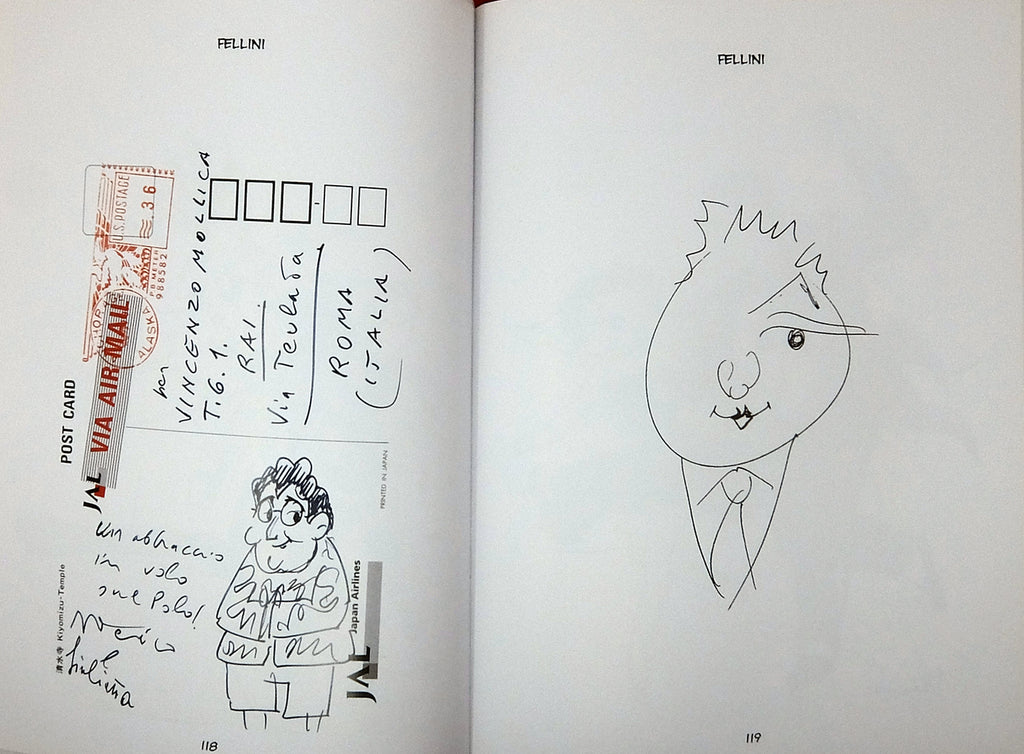 FELLINI
POST CARD
JAL
VIA AIR MAIL
U.S. POSTAGE
.36
PB METER
988582
ALASKA
per
VINCENZO MOLLICA
T.G.1.
RAI
Via Teulada
ROMA
(ITALIA)
清水寺 Kiyomizu-Temple
un abbraccio
in volo
sul Polo!
PRINTED IN JAPAN
JAL Japan Airlines
118
FELLINI
119